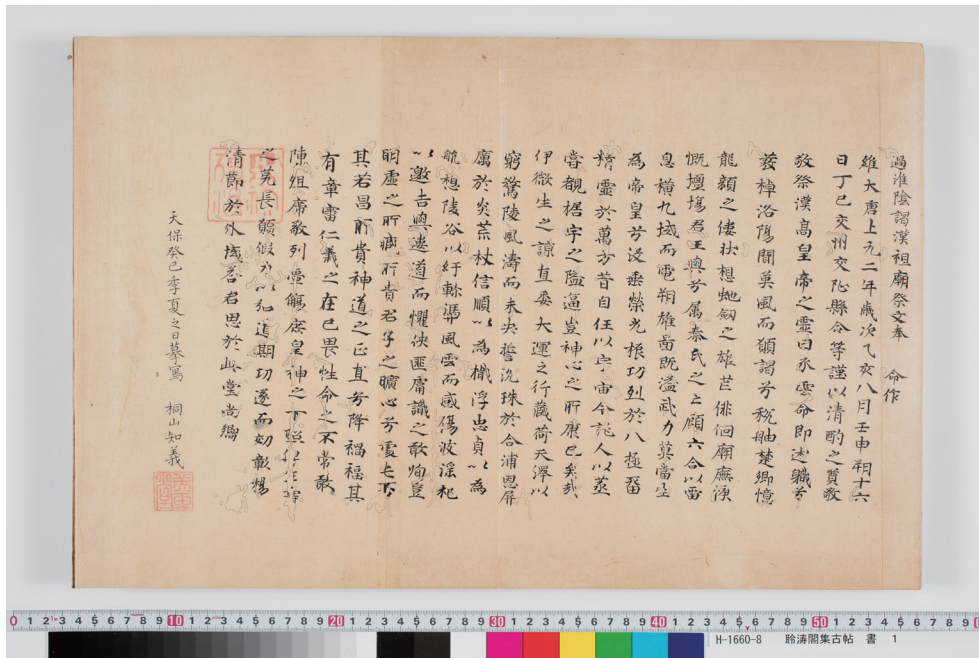 過淮陰謁漢祖廟祭文奉 命作
維大唐上元二年歳次乙亥八月壬申朔十六
日丁巳交州交阯縣令等謹以清酌之奠敬
敬祭漢高皇帝之靈曰承雲命即述職兮
發棹洛陽聞莫風而願謁兮稅舳楚郷憶
龍顔之佳状想虵劔之雄芒俳佪廟廡
慨壇場君王興兮属秦氏之上願六合以雷
息横九域而電朔雄啚既溢武力莫當生
為帝皇兮没垂榮光振功烈於八極留
精靈於萬方昔自任以宇宙今託人以蒸
甞覩椐宇之隘逼豈神心之所康已矣哉
伊微生之諒直委大運之行蔵荷天澤以
窮驚陵風濤而未央誓沈珠於合浦思屏
厲於炎荒杖信順以為檝浮忠貞以為
航想陵谷以紆軫憑風雲而感傷彼淫祀
以邀吉興媿道而懼殃匪庸識之敢徇豈
明虚之所臧所貴君子之曠心兮
其若昌所貴神道之正直兮降禍福其
有章雷仁義之在已畏性命之不常敢
陳俎席敬列壘觴庶皇神之下照
之莫長願假力以弘道期功遂而効彰揚
清節於外域荅君恩於此堂尚饗
天保癸巳季夏之日摹寫 桐山知義
0 1 2 3 4 5 6 7 8 9 10 1 2 3 4 5 6 7 8 9 20 1 2 3 4 5 6 7 8 9 30 1 2 3 4 5 6 7 8 9 40 1 2 3 4 5 6 7 8 9 50 1 2 3 4 5 6 7 8 9
H-1660-8 聆涛閣集古帖 書 1